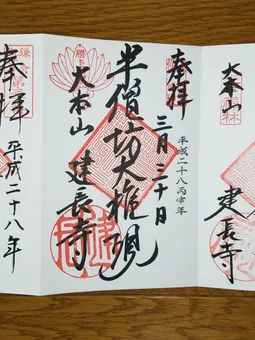 奉拝
平成二十八丙申年
三月三十日
半僧坊大権現
大本山
建長寺
大本山
建長寺
奉拝
平成二十八年